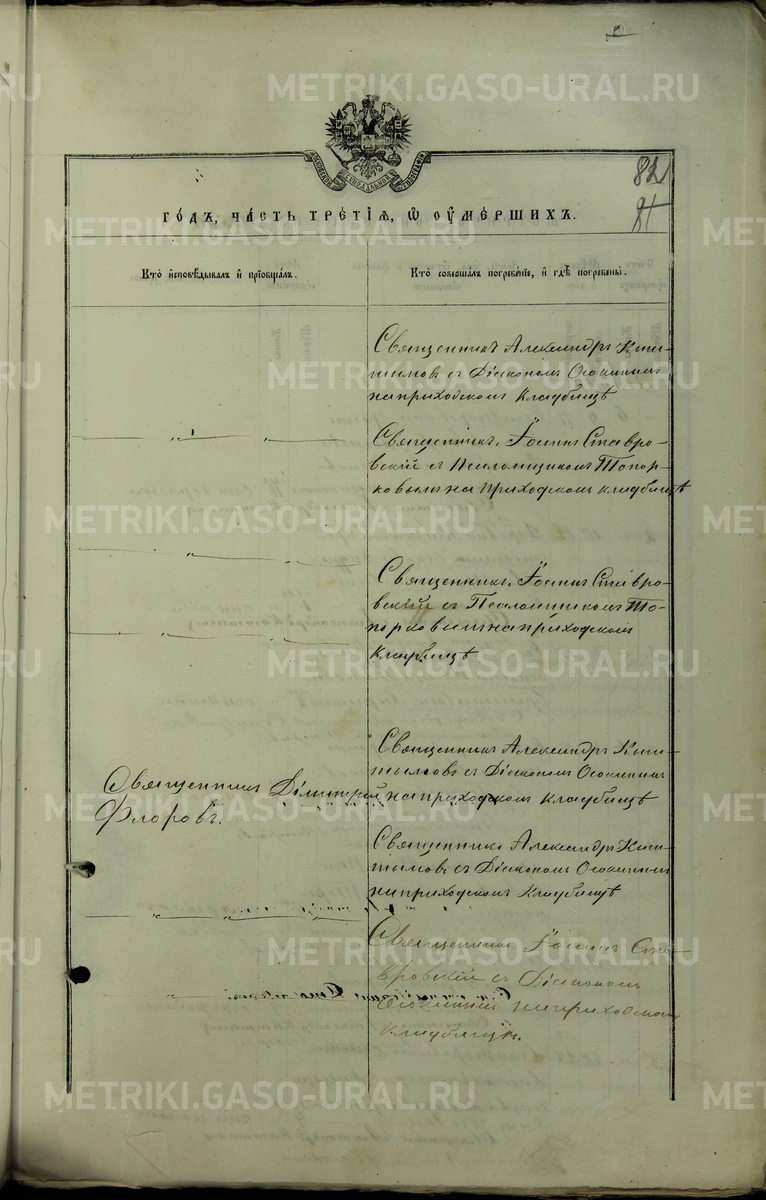 METRIKI.GASO-URAL.RU
МОСКОВСКОЙ СѴНОДАЛЬНОЙ ТИПОГРАФІИ
82
ГОДЪ, ЧАСТЬ ТРЕТІЯ, Ѡ ОУМЕРШИХЪ.
Кто исповѣдывалъ и пріобщалъ.
Кто совершалъ погребеніе, и гдѣ погребены.
Священникъ Александръ Кни-
шымовъ съ Діакономъ Осокинымъ
на приходскомъ кладбищѣ
Священникъ Іоаннъ Ставро-
вскій съ Псаломщикомъ Топор-
ковымъ на приходскомъ кладбищѣ
Священникъ Іоаннъ Ставро-
вскій съ Псаломщикомъ То-
порковымъ на приходскомъ
кладбищѣ
Священникъ Димитрій
Флоровъ.
Священникъ Александръ
съ Діакономъ Осокинымъ
на приходскомъ кладбищѣ
Священникъ Александръ
съ Діакономъ Осокинымъ
на приходскомъ кладбищѣ
Священникъ Іоаннъ Ста-
вровскій съ Діакономъ
Осокинымъ на приходскомъ
кладбищѣ.